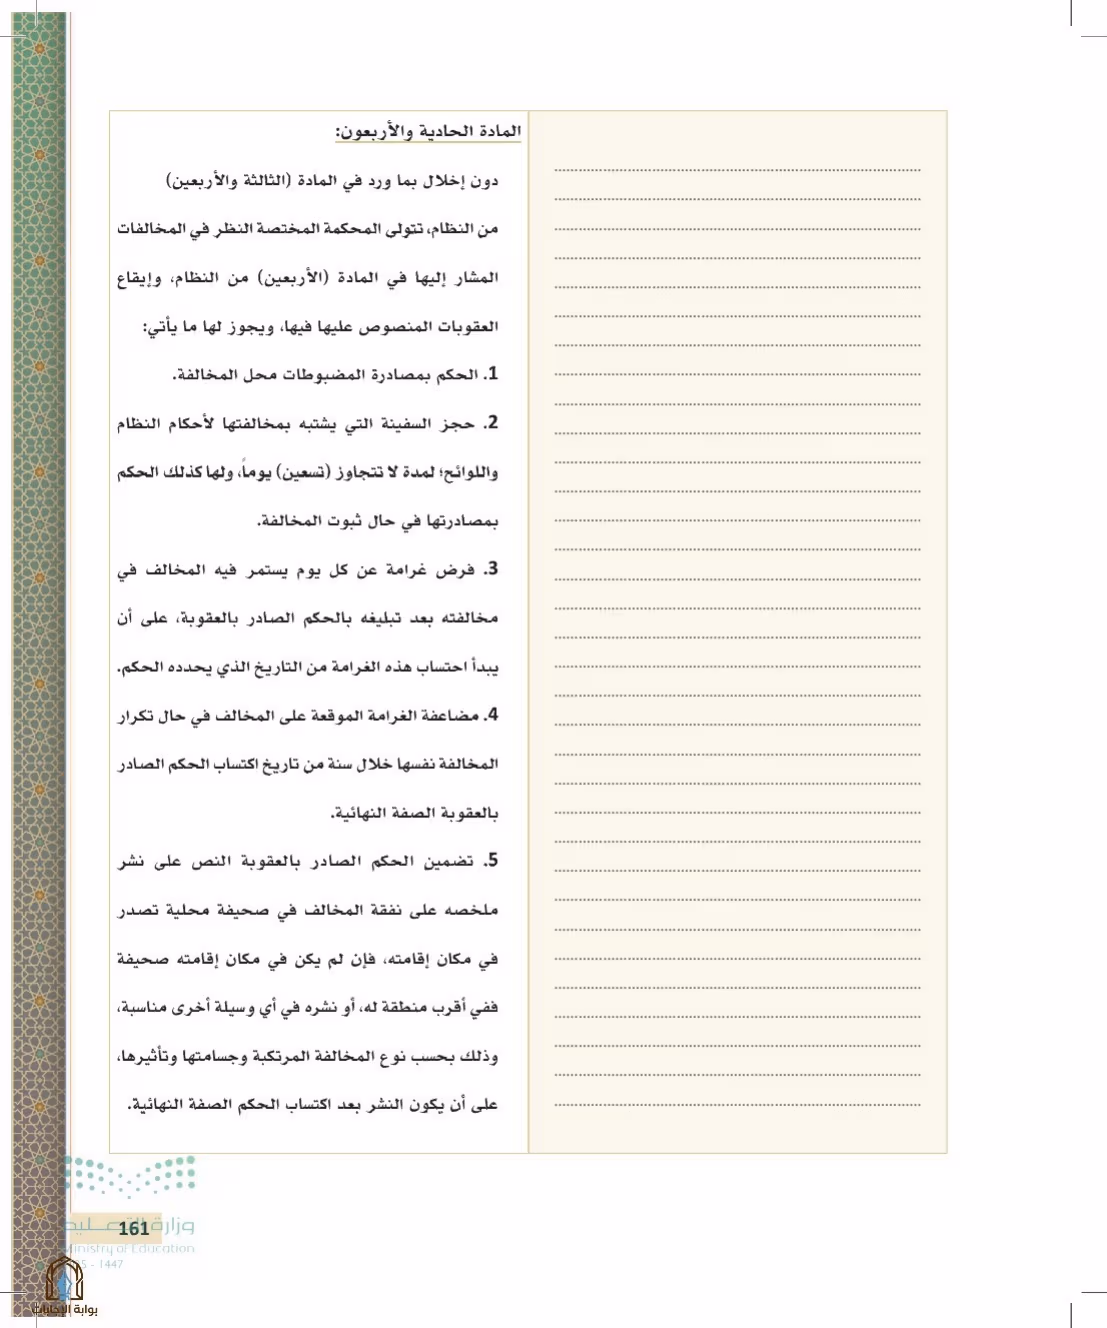 المادة الحادية والأربعون:
دون إخلال بما ورد في المادة (الثالثة والأربعين)
من النظام، تتولى المحكمة المختصة النظر في المخالفات
المشار إليها في المادة (الأربعين) من النظام، وإيقاع
العقوبات المنصوص عليها فيها، ويجوز لها ما يأتي:
1. الحكم بمصادرة المضبوطات محل المخالفة.
2. حجز السفينة التي يشتبه بمخالفتها لأحكام النظام
واللوائح؛ لمدة لا تتجاوز (تسعين) يوماً، ولها كذلك الحكم
بمصادرتها في حال ثبوت المخالفة.
3. فرض غرامة عن كل يوم يستمر فيه المخالف في
مخالفته بعد تبليغه بالحكم الصادر بالعقوبة، على أن
يبدأ احتساب هذه الغرامة من التاريخ الذي يحدده الحكم.
4. مضاعفة الغرامة الموقعة على المخالف في حال تكرار
المخالفة نفسها خلال سنة من تاريخ اكتساب الحكم الصادر
بالعقوبة الصفة النهائية.
5. تضمين الحكم الصادر بالعقوبة النص على نشر
ملخصه على نفقة المخالف في صحيفة محلية تصدر
في مكان إقامته، فإن لم يكن في مكان إقامته صحيفة
ففي أقرب منطقة له، أو نشره في أي وسيلة أخرى مناسبة،
وذلك بحسب نوع المخالفة المرتكبة وجسامتها وتأثيرها،
على أن يكون النشر بعد اكتساب الحكم الصفة النهائية.
وزارة التعليم
161
Ministry of Education
- 1447
بوابة الإجابات